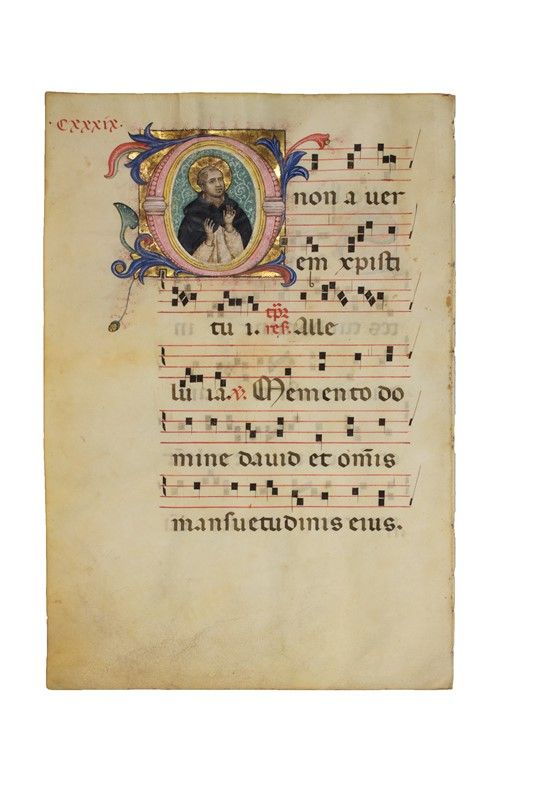 ·CXXXIX·
O non a uer
em xpisti
tu i. tp̄r Alle
lu ia. ℣. Memento do
mine dauid et om̄is
mansuetudinis eius.